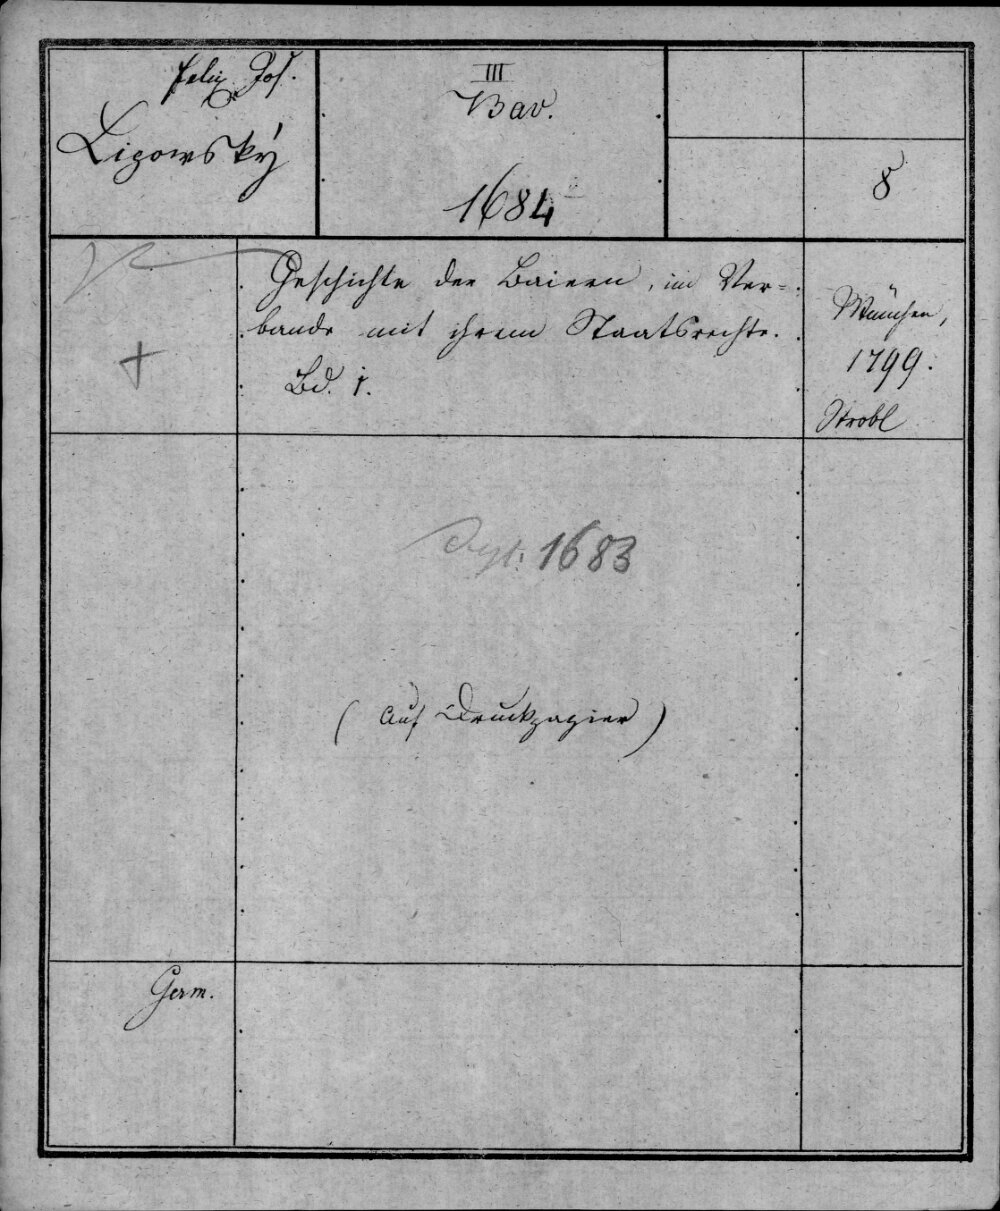 Felix Jos.
Lipowsky
III
Bav.
1684
8
Geschichte der Baiern, im Ver-
bande mit ihrem Staatsrechte.
Bd. 1.
München,
1799.
Strobl
1683
(auf Druckpapier)
Germ.